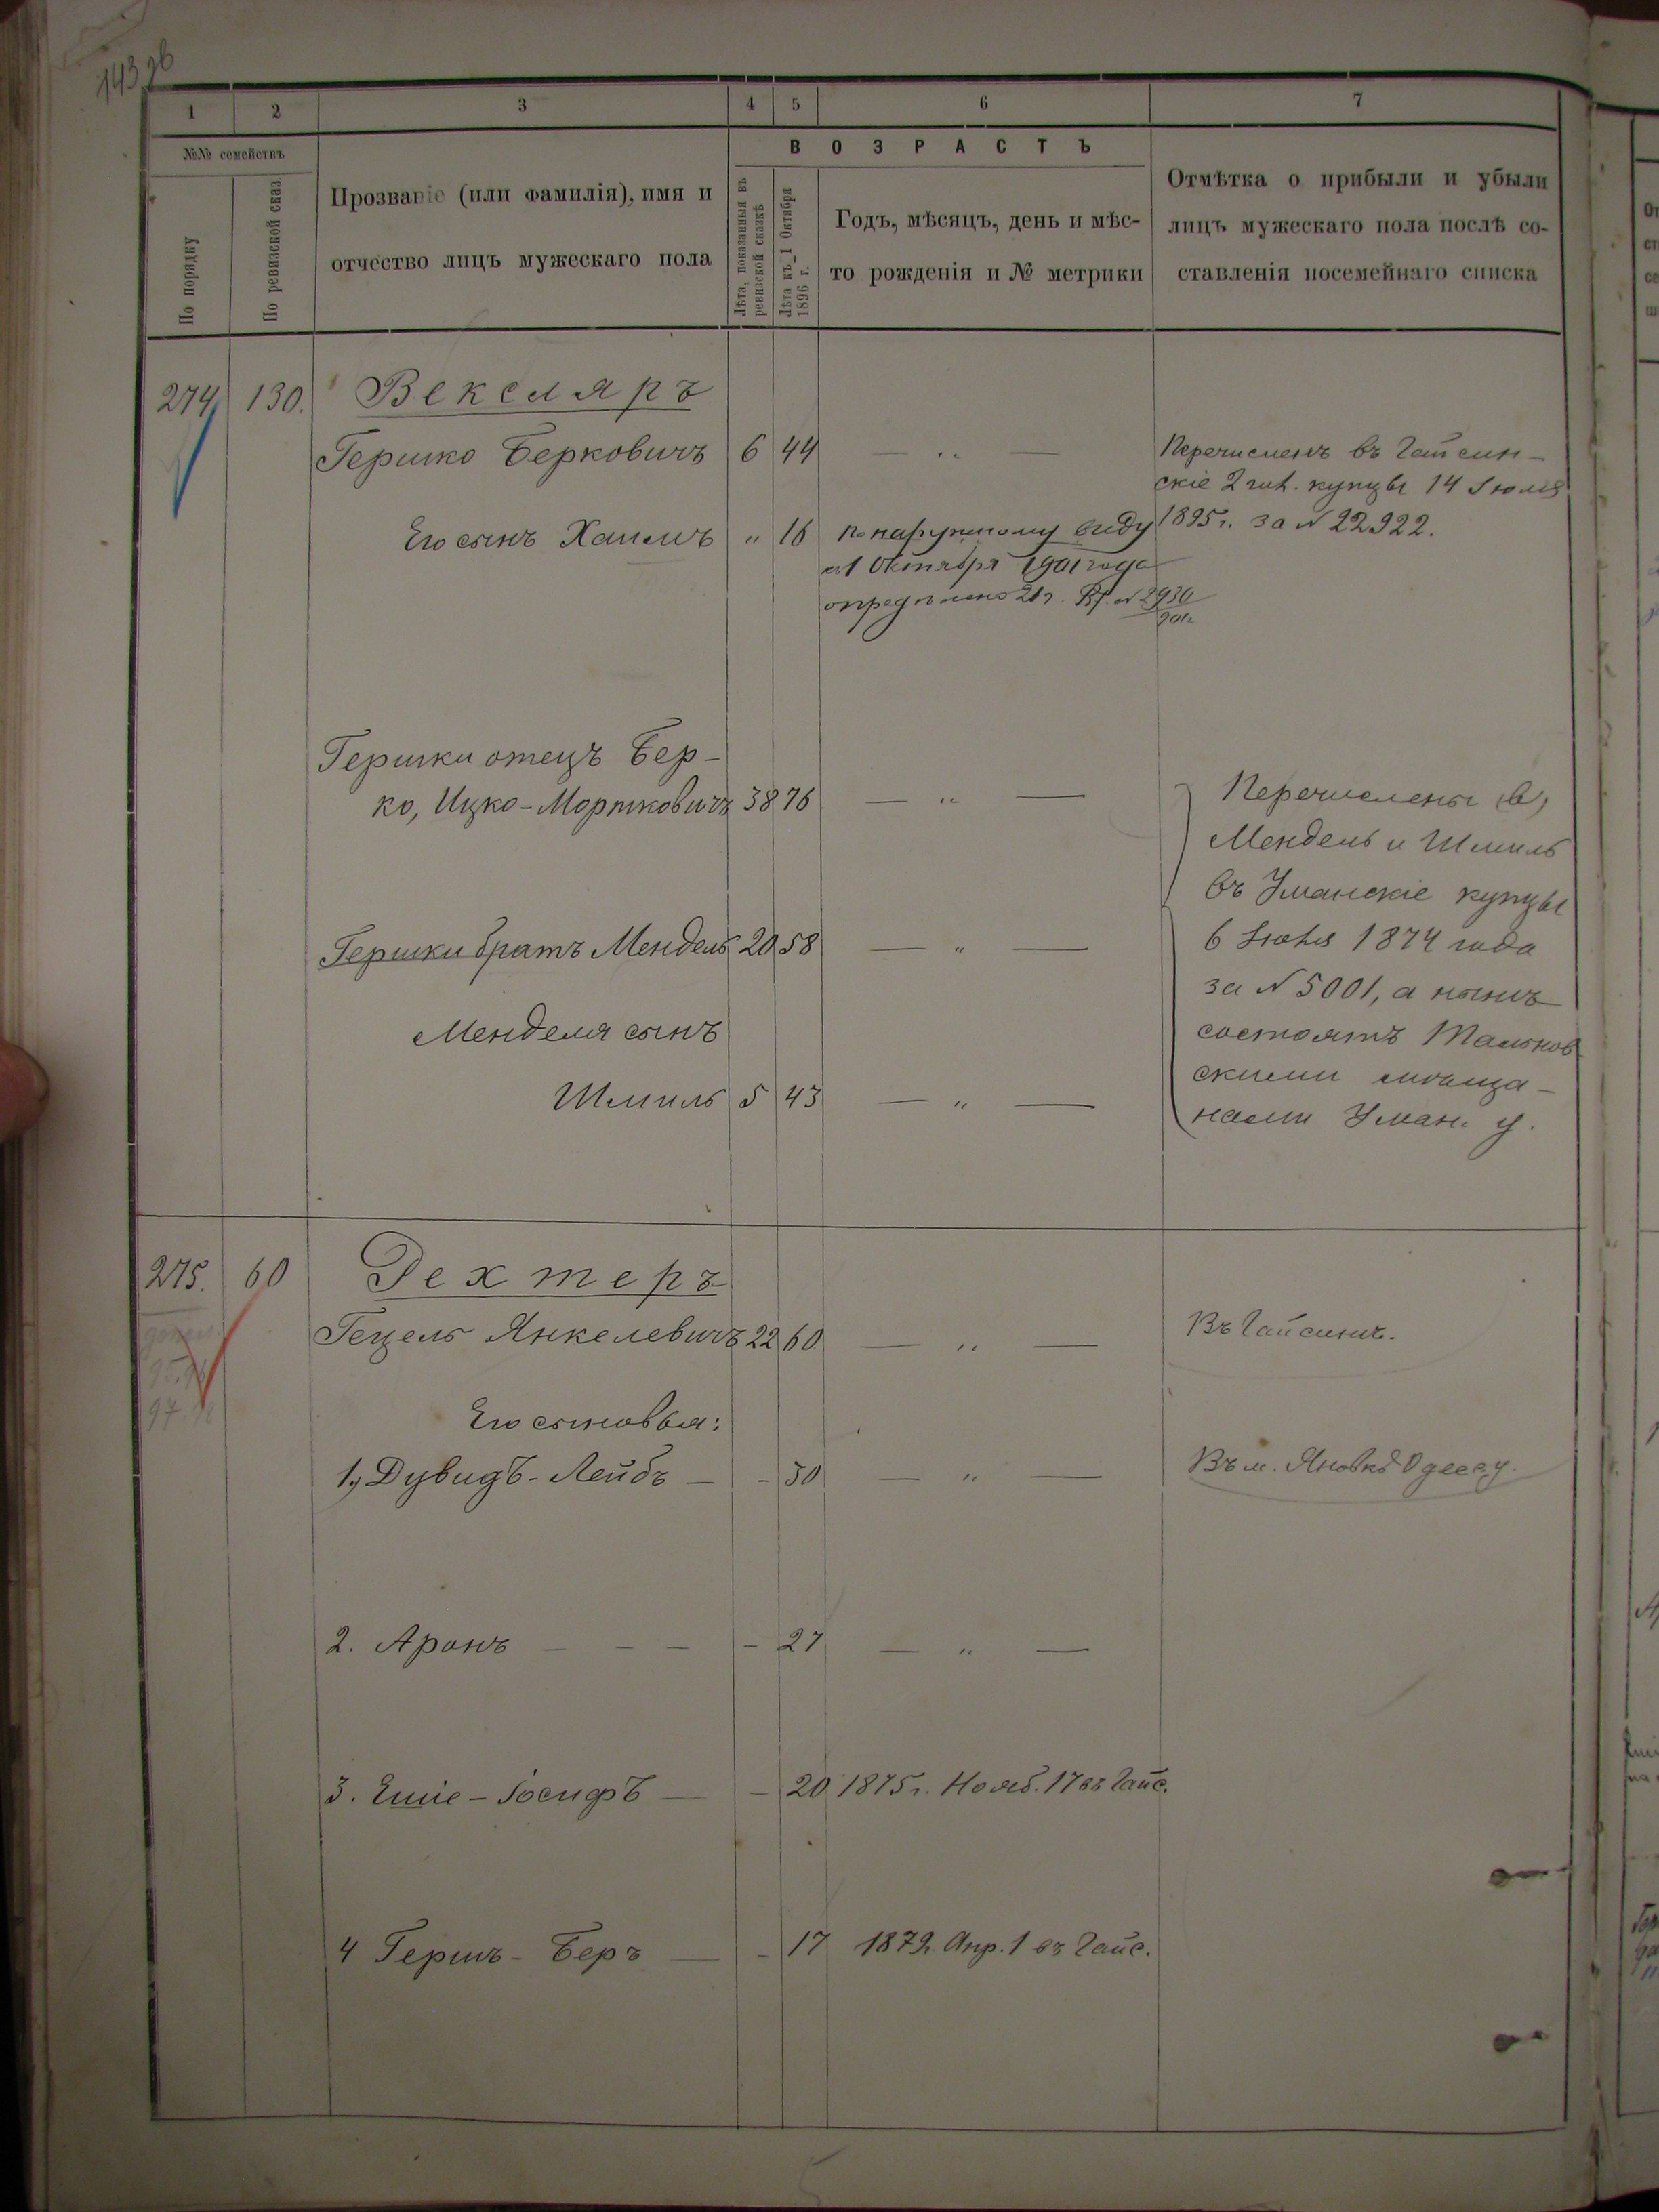 143 об
1 2 3 4 5 6 7
№№ семействъ
По порядку
По ревизской сказ.
Прозваніе (или фамилія), имя и
отчество лицъ мужескаго пола
ВОЗРАСТЪ
Лѣта, показанныя въ
ревизской сказкѣ
Лѣта къ 1 Октября
1896 г.
Годъ, мѣсяцъ, день и мѣс-
то рожденія и № метрики
Отмѣтка о прибыли и убыли
лицъ мужескаго пола послѣ со-
ставленія посемейнаго списка
274 130. Вексляръ
Гершко Берковичъ 6 44 — „ —
Перечисленъ въ Гайсин-
скіе 2 гил. купцы 14 Іюля
1895 г. за № 22922.
Его сынъ Хаимъ „ 16 По наружному виду
къ 1 Октября 1901 года
опредѣлено 21 г. № 2930
901 г.
Гершки отецъ Бер-
ко, Ицко-Мортковичъ 38 76 — „ —
Гершки братъ Мендель 20 58 — „ —
Менделя сынъ
Шмиль 5 43 — „ —
Перечислены
Мендель и Шмиль
въ Уманскіе купцы
6 Іюня 1874 года
за № 5001, а нынѣ
состоятъ Тальнов
скими мѣща-
нами Уман. у.
275. 60 Дехтеръ
Гецель Янкелевичъ 22 60 — „ — Въ Гайсинѣ.
Его сыновья:
1., Дувидъ-Лейбъ — - 30 — „ — Въ м. Яновкѣ Одесс. у.
2. Аронъ — — — - 27 — „ —
3. Ешіе-Іосифъ — - 20 1875 г. Нояб. 17 въ Гайс.
4 Гершъ-Беръ — - 17 1879. Апр. 1 въ Гайс.